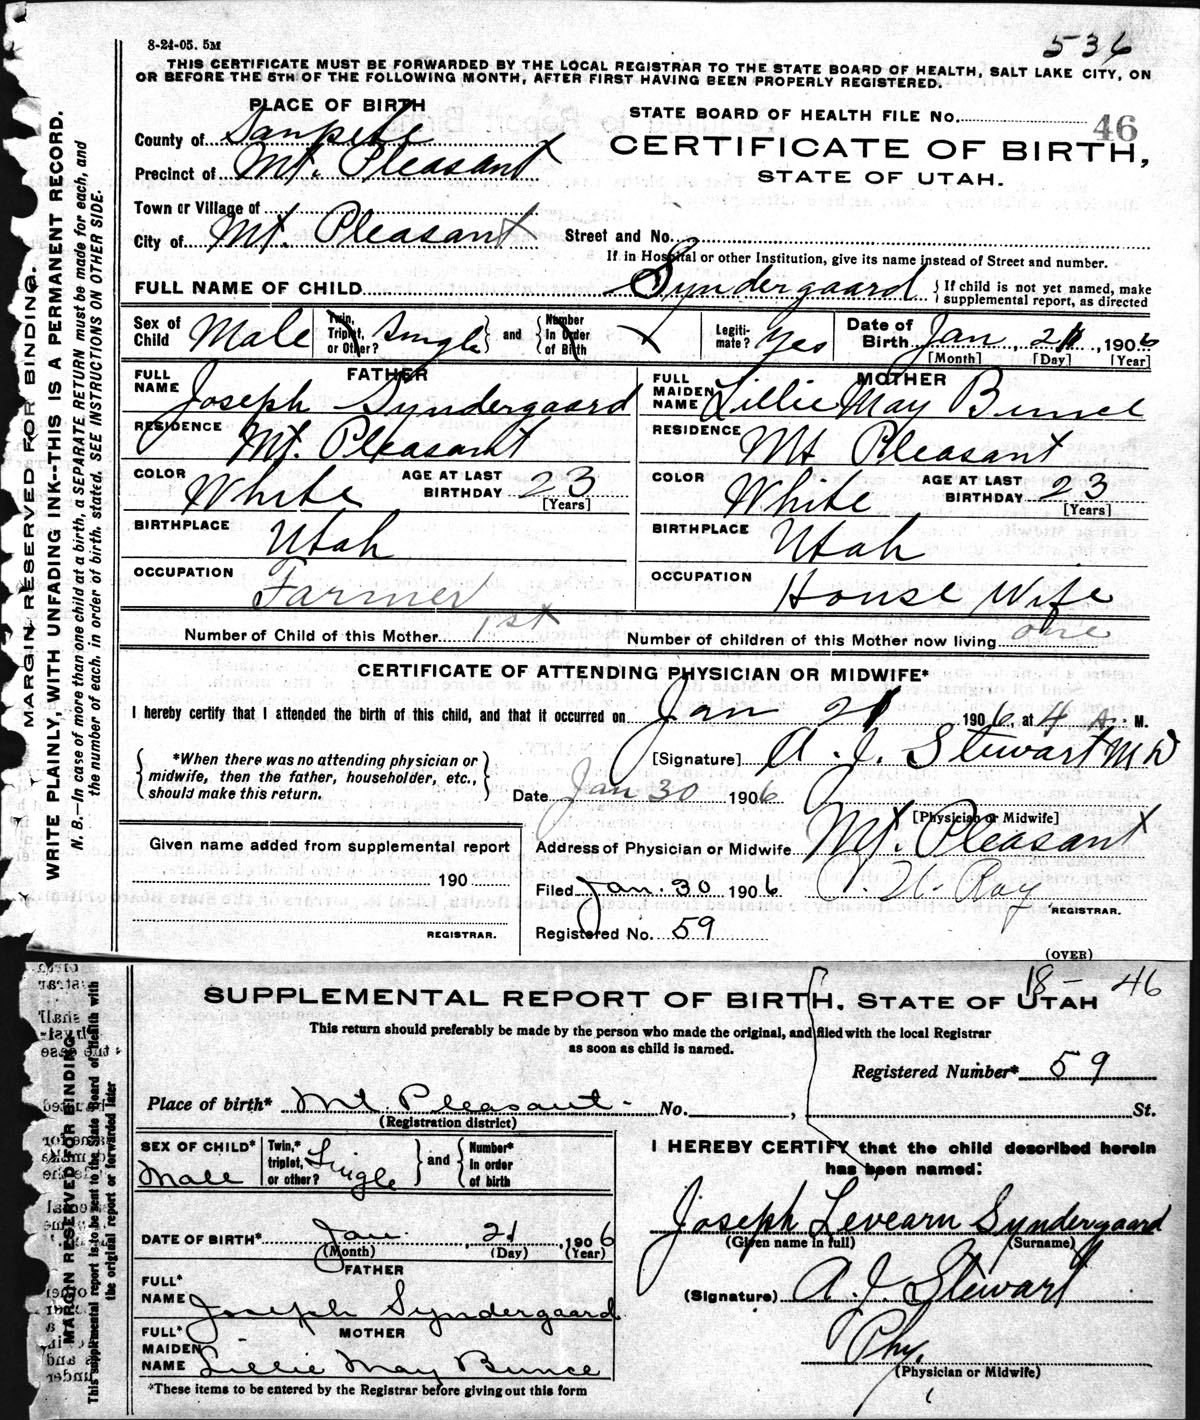 8-24-05. 5M
536
THIS CERTIFICATE MUST BE FORWARDED BY THE LOCAL REGISTRAR TO THE STATE BOARD OF HEALTH, SALT LAKE CITY, ON
OR BEFORE THE 5TH OF THE FOLLOWING MONTH, AFTER FIRST HAVING BEEN PROPERLY REGISTERED.
PLACE OF BIRTH
County of Sanpete
Precinct of Mt. Pleasant
Town or Village of
City of Mt. Pleasant
STATE BOARD OF HEALTH FILE No. 46
CERTIFICATE OF BIRTH,
STATE OF UTAH.
Street and No.
If in Hospital or other Institution, give its name instead of Street and number.
FULL NAME OF CHILD Syndergaard { If child is not yet named, make
supplemental report, as directed
Sex of Child Male Twin, Triplet, or Other? Single and Number In Order of Birth Legiti-mate? Yes Date of Birth Jan 21, 1906
[Month] [Day] [Year]
FATHER
FULL NAME Joseph Syndergaard
RESIDENCE Mt. Pleasant
COLOR White AGE AT LAST BIRTHDAY 23
[Years]
BIRTHPLACE Utah
OCCUPATION Farmer
MOTHER
FULL MAIDEN NAME Lillie May Bunce
RESIDENCE Mt Pleasant
COLOR White AGE AT LAST BIRTHDAY 23
[Years]
BIRTHPLACE Utah
OCCUPATION House Wife
Number of Child of this Mother 1st Number of children of this Mother now living one
CERTIFICATE OF ATTENDING PHYSICIAN OR MIDWIFE*
I hereby certify that I attended the birth of this child, and that it occurred on Jan 21 1906, at 4 A. M.
*When there was no attending physician or
midwife, then the father, householder, etc.,
should make this return.
[Signature] A. J. Stewart MD
Date Jan 30 1906
[Physician or Midwife]
Address of Physician or Midwife Mt. Pleasant
Given name added from supplemental report
190
REGISTRAR.
Filed Jan. 30 1906 Ray
REGISTRAR.
Registered No. 59
(OVER)
MARGIN RESERVED FOR BINDING.
WRITE PLAINLY, WITH UNFADING INK--THIS IS A PERMANENT RECORD.
N. B.--In case of more than one child at a birth, a SEPARATE RETURN must be made for each, and
the number of each, in order of birth, stated. SEE INSTRUCTIONS ON OTHER SIDE.
18- 46
SUPPLEMENTAL REPORT OF BIRTH, STATE OF UTAH
This return should preferably be made by the person who made the original, and filed with the local Registrar
as soon as child is named.
Registered Number* 59
Place of birth* Mt Pleasant No. , St.
(Registration district)
SEX OF CHILD* Male Twin,* triplet, or other? Single and Number* in order of birth
DATE OF BIRTH* Jan. , 21 , 1906
(Month) (Day) (Year)
FATHER
FULL* NAME Joseph Syndergaard
MOTHER
FULL* MAIDEN NAME Lillie May Bunce
*These items to be entered by the Registrar before giving out this form
I HEREBY CERTIFY that the child described herein
has been named:
Joseph Levearn Syndergaard
(Given name in full) (Surname)
(Signature) A. J. Stewart
Phy.
(Physician or Midwife)
MARGIN RESERVED FOR BINDING
This supplemental report is to be sent to the State Board of Health with
the original report or forwarded later